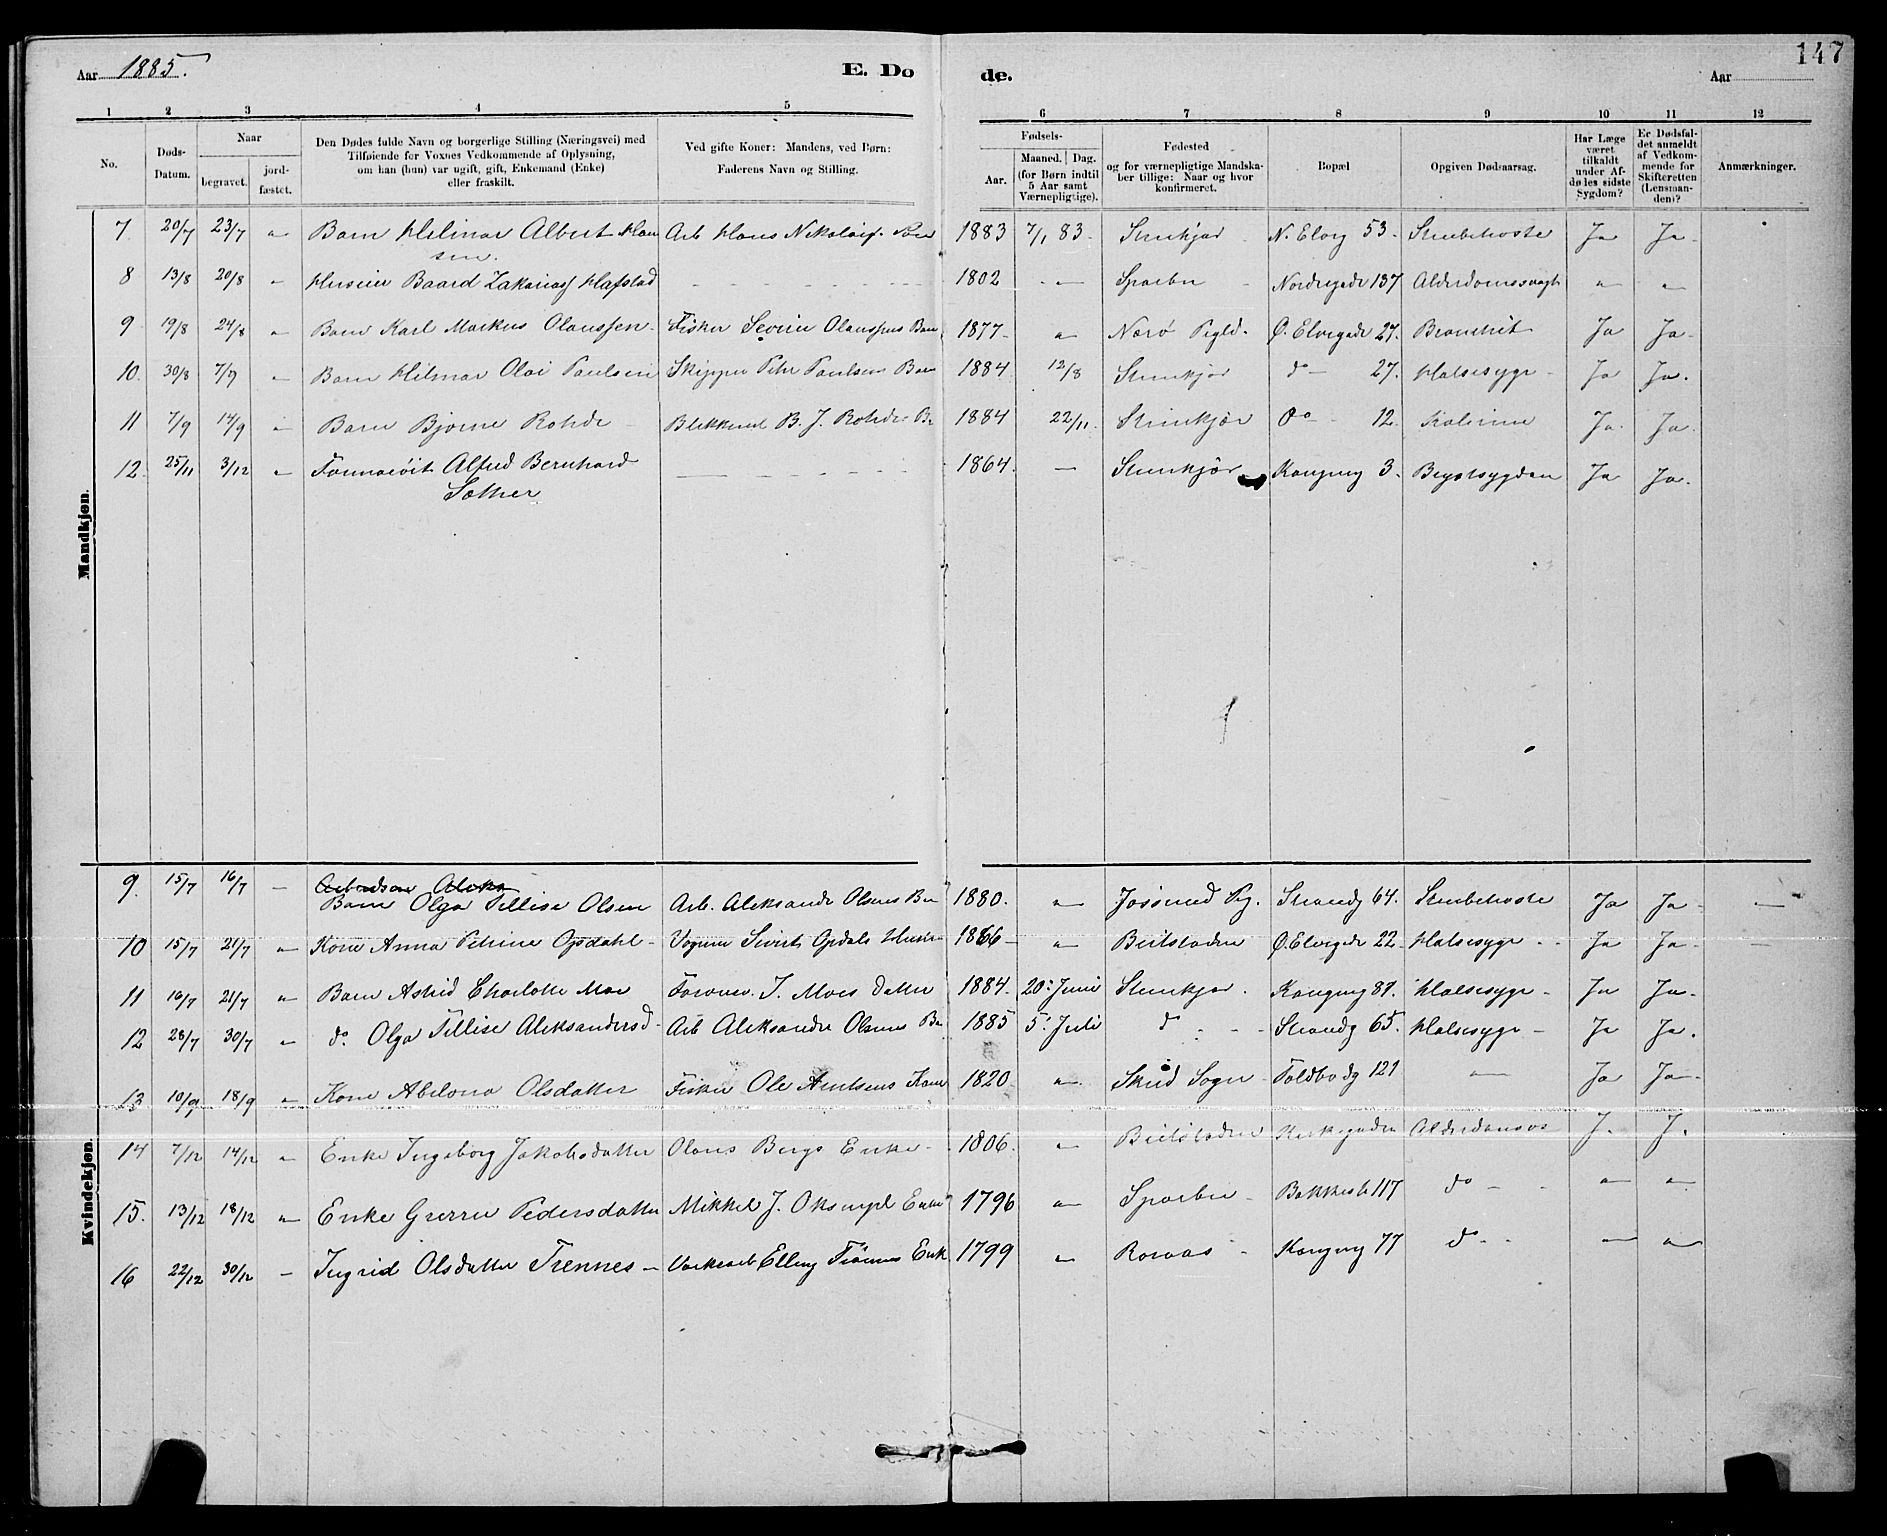 147
Aar 1885.
E. Do de.
Aar
1 2 3 4 5 6 7 8 9 10 11 12
No.
Døds-Datum.
Naar
begravet.
jord-fæstet.
Den Dødes fulde Navn og borgerlige Stilling (Næringsvei) med
Tilføiende for Voxnes Vedkommende af Oplysning,
om han (hun) var ugift, gift, Enkemand (Enke)
eller fraskilt.
Ved gifte Koner: Mandens, ved Børn:
Faderens Navn og Stilling.
Fødsels-
Aar.
Maaned. Dag.
(for Børn indtil
5 Aar samt
Værnepligtige).
Fødested
og for værnepligtige Mandska-
ber tillige: Naar og hvor
konfirmeret.
Bopæl
Opgiven Dødsaarsag.
Har Læge
været
tilkaldt
under Af-
dødes sidste
Sygdom?
Er Dødsfal-
det anmeldt
af Vedkom-
mende for
Skifteretten
(Lensman-
den)?
Anmærkninger.
Mandkjøn.
7 20/7 23/7 " Barn Hilmar Albert Han Arb Hans Nikolai 1883 7/1 83. Stenkjær N. Elvg 53. Strubehoste Ja Ja
sen.
8 13/8 20/8 " Baard Zakarias Hafstad 1802 Sparbu Nordregade 137 Alderdomssvagh " "
9 19/8 24/8 " Barn Karl Markus Olaussen Fisker Severin Olaussens Barn 1877 " Nærø Prgld. Ø. Elvegade 27. Bronchit Ja Ja
10. 30/8 7/9 " Barn Hilmar Olai Paulsen Skipper Peter Paulsens Barn 1884 12/8 Stenkjær do 27. Halssyge Ja Ja.
11 7/9 14/9 " Barn Bjarne Rohde Blikkensl B. J. Rohdes B 1884 22/11. Stenkjær Do 12. Kolerine Ja. Ja.
12. 25/11 3/12 " Alfred Bernhard 1864. Stenkjær Kongensg 3. Brystsygdom Ja Ja.
Sæther
Kvindekjøn.
9. 15/7 16/7 — Arbeidsm Aleks
Barn Olga Tellise Olsen Arb. Aleksander Olsens Ba 1880. " Jøssund Pg. Strandg 64. Strubehoste Ja Ja —
10 15/7 21/7 " Kone Anna Petrine Opsdahl Sivert Opdals Hustr 1866 " Beitstaden Ø. Elvegade 22 Halssyge Ja Ja —
11 16/7 21/7 " Barn Astrid Charlotte Moe J. Moes Datter 1884. 20. Juni Stenkjær Kongensg 87. Halssyge Ja Ja
12 28/7 30/7 " do Olga Tellise Aleksandersd Arb Aleksander Olsens Ba 1885 5. Juli do Strandg 65. Halssyge Ja Ja.
13 10/9 18/9 " Kone Abelona Olsdatter Fisker Ole Arntsens Kone 1820 " Skeid Sogn Toldbodg 121 — Ja Ja
14 7/12 14/12 " Enke Ingeborg Jakobsdatter Olaus Bergs Enke 1806. " Beitstaden Kirkegaden Alderdomssv J. J.
15. 13/12 18/12 " Enke Pedersdatter Mikkel J. Enke 1796 " Sparbu Bakkest 117 do " "
16 22/12 30/12 — Ingrid Olsdatter Trennes Elling Enk 1799 " Roraas Kongensg 77 do — "